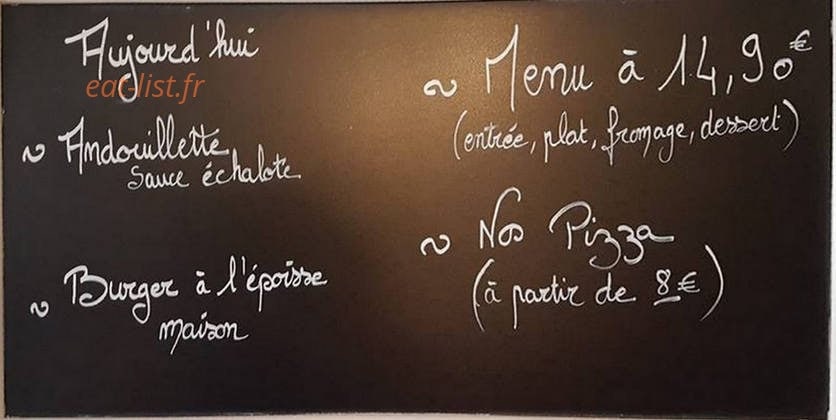 Aujourd'hui
eat-list.fr
~ Andouillette
sauce échalote
~ Burger à l'époisse
maison
~ Menu à 14,90€
(entrée, plat, fromage, dessert)
~ Nos Pizza
(à partir de 8€)